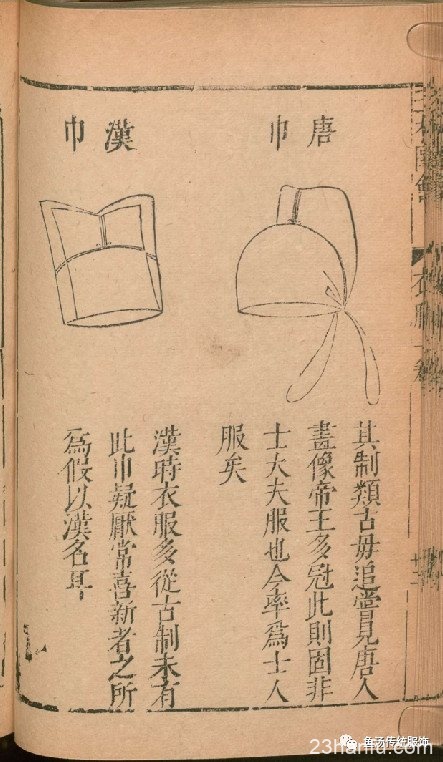 三才圖會
衣服一卷
唐巾
其制類古毋追嘗見唐人
畫像帝王多冠此則固非
士大夫服也今率爲士人
服矣
漢巾
漢時衣服多從古制未有
此巾疑厭常喜新者之所
爲假以漢名耳
鱼汤传统服饰
23hanfu.com